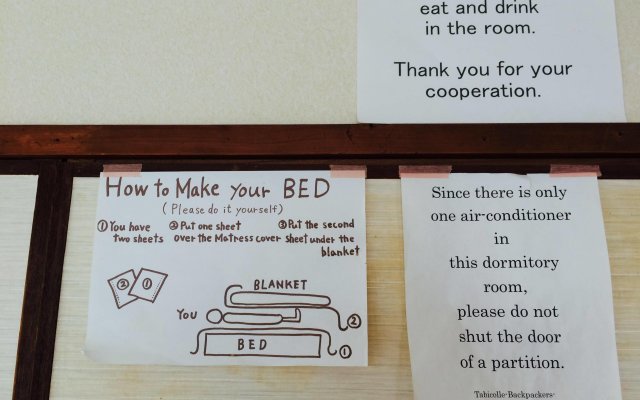 eat and drink
in the room.
Thank you for your
cooperation.
How to Make your BED
(Please do it yourself)
① You have
two sheets
② Put one sheet
over the Matress cover
③ Put the second
sheet under the
blanket
② ①
BLANKET
You
②
BED
①
Since there is only
one air-conditioner
in
this dormitory
room,
please do not
shut the door
of a partition.